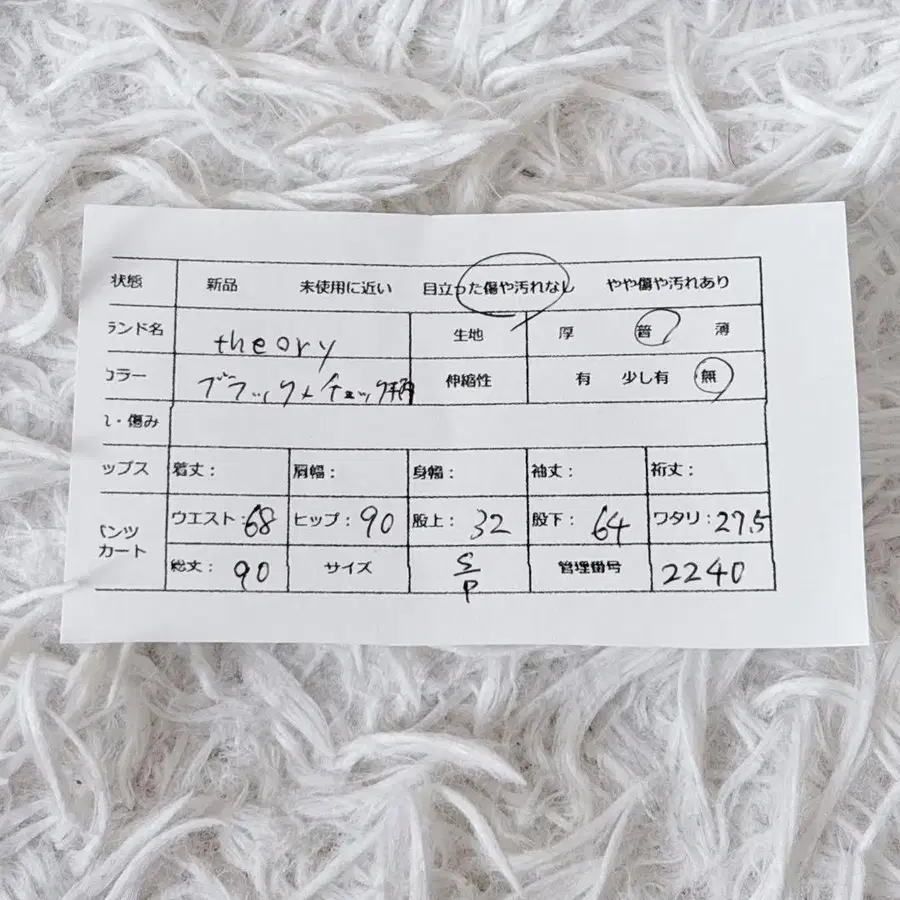 状態 新品 未使用に近い 目立った傷や汚れなし やや傷や汚れあり
ランド名 theory 生地 厚 普 薄
カラー ブラック×チェック柄 伸縮性 有 少し有 無
・傷み
ップス 着丈: 肩幅: 身幅: 袖丈: 裄丈:
ンツ ウエスト:68 ヒップ:90 股上:32 股下:64 ワタリ:27.5
カート
総丈:90 サイズ S/P 管理番号 2240